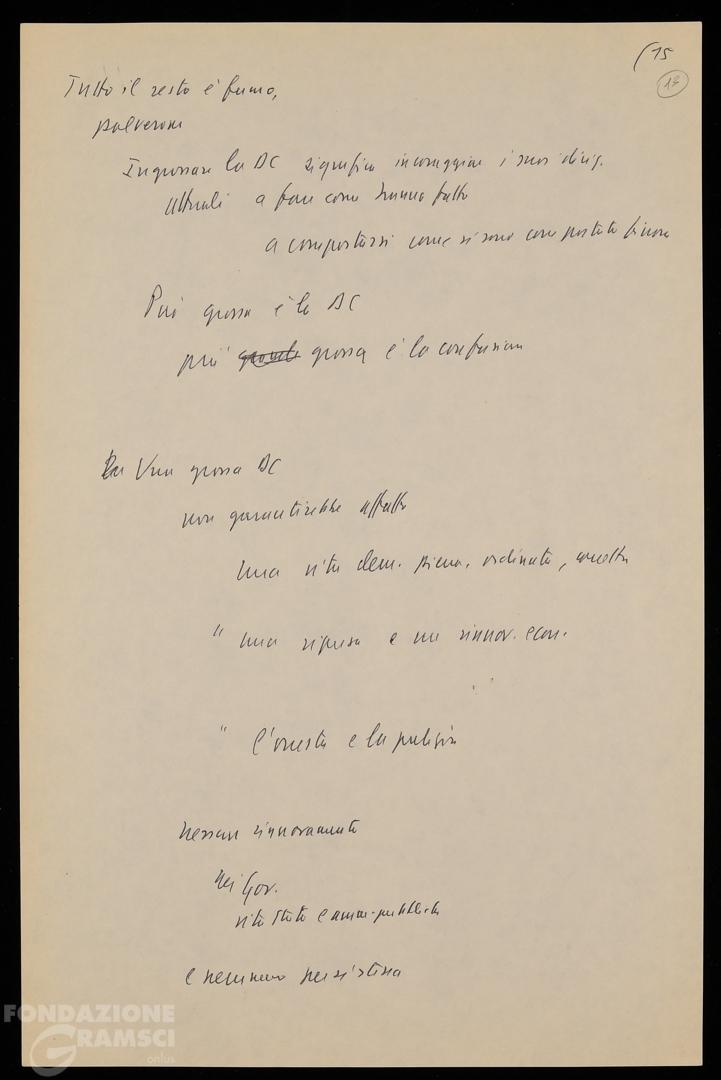 (15
17
Tutto il resto è fumo,
polverone
Ingrossare la DC significa incoraggiare i suoi dirig.
attuali a fare come hanno fatto
a comportarsi come si sono comportati finora
Più grossa è la DC
più grossa è la confusione
Una grossa DC
non garantirebbe affatto
una vita dem. piena, ordinata, onesta
" una ripresa e un rinnov. econ.
" l'onestà e la pulizia
nessun rinnovamento
nei Gov.
vita Stato e amm. pubblica
e nemmeno persistenza
FONDAZIONE
GRAMSCI
onlus